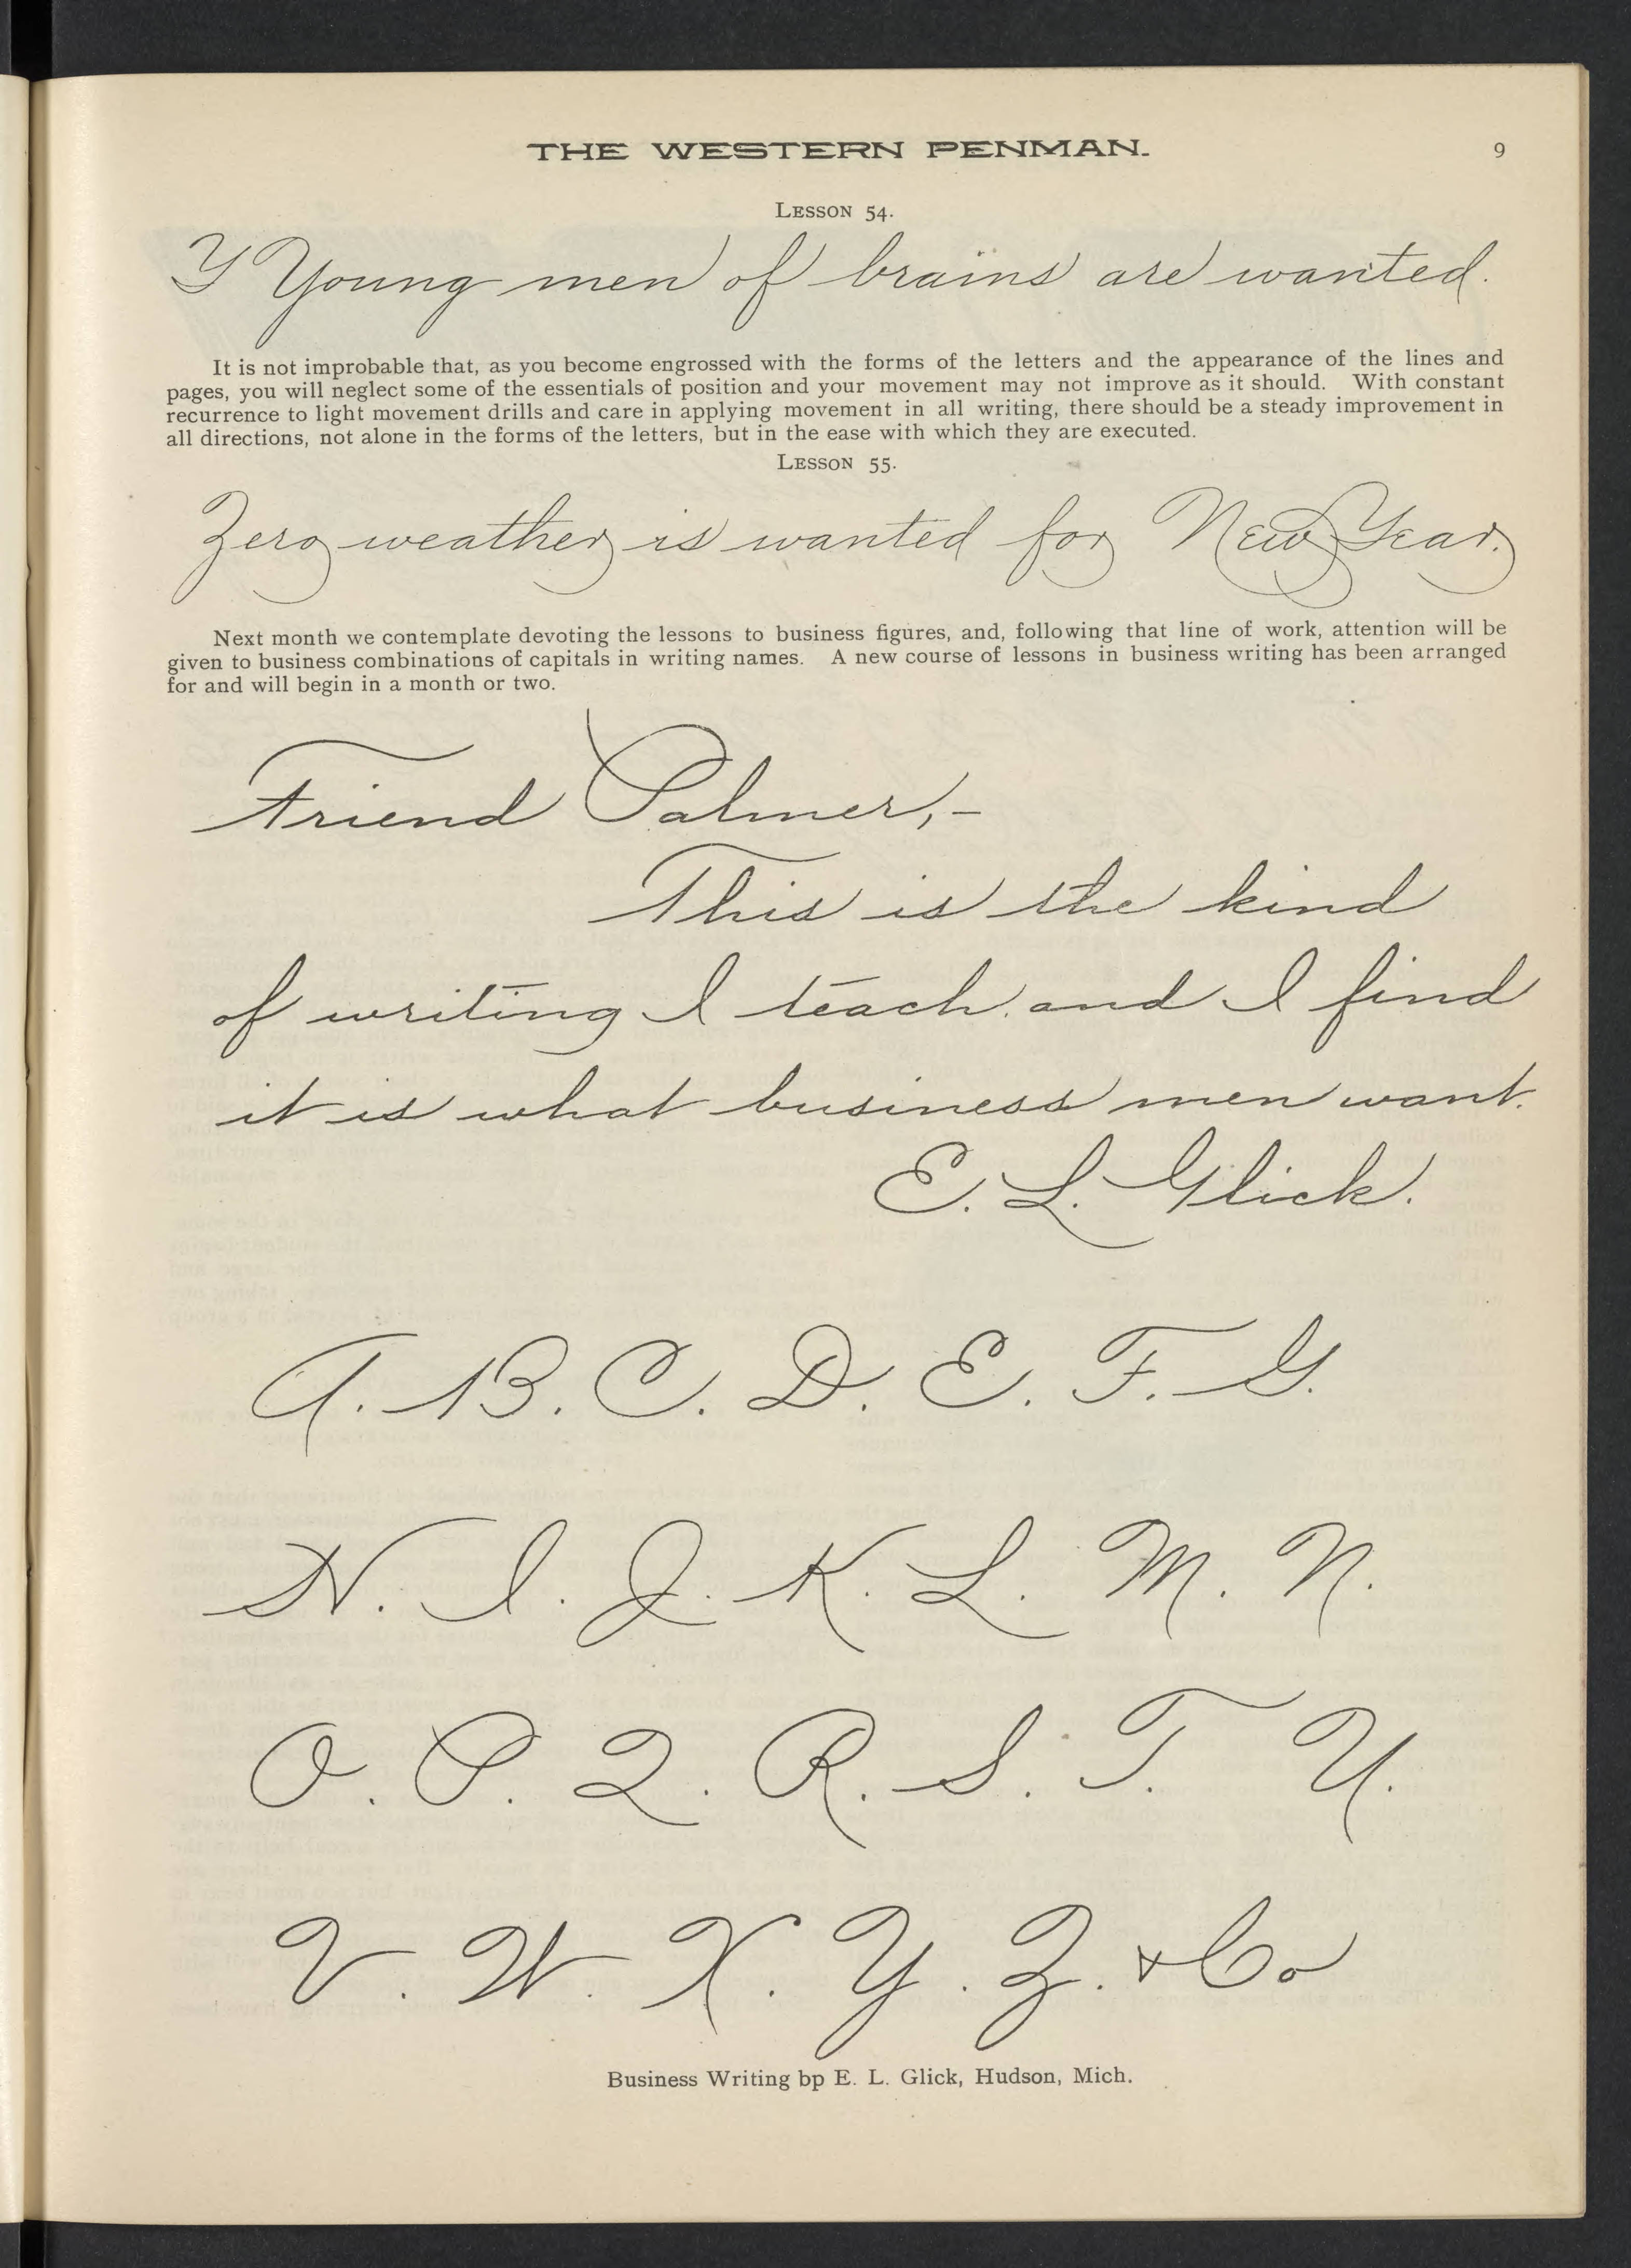 THE WESTERN PENMAN.
9
LESSON 54.
Y Young men of brains are wanted.
It is not improbable that, as you become engrossed with the forms of the letters and the appearance of the lines and
pages, you will neglect some of the essentials of position and your movement may not improve as it should. With constant
recurrence to light movement drills and care in applying movement in all writing, there should be a steady improvement in
all directions, not alone in the forms of the letters, but in the ease with which they are executed.
LESSON 55.
Zero weather is wanted for New Year.
Next month we contemplate devoting the lessons to business figures, and, following that line of work, attention will be
given to business combinations of capitals in writing names. A new course of lessons in business writing has been arranged
for and will begin in a month or two.
Friend Palmer,-
This is the kind
of writing I teach. and I find
it is what business men want.
E. L. Glick.
A. B. C. D. E. F. G.
H. I. J. K. L. M. N.
O. P. Q. R. S. T. U.
V. W. X. Y. Z. & Co
Business Writing bp E. L. Glick, Hudson, Mich.